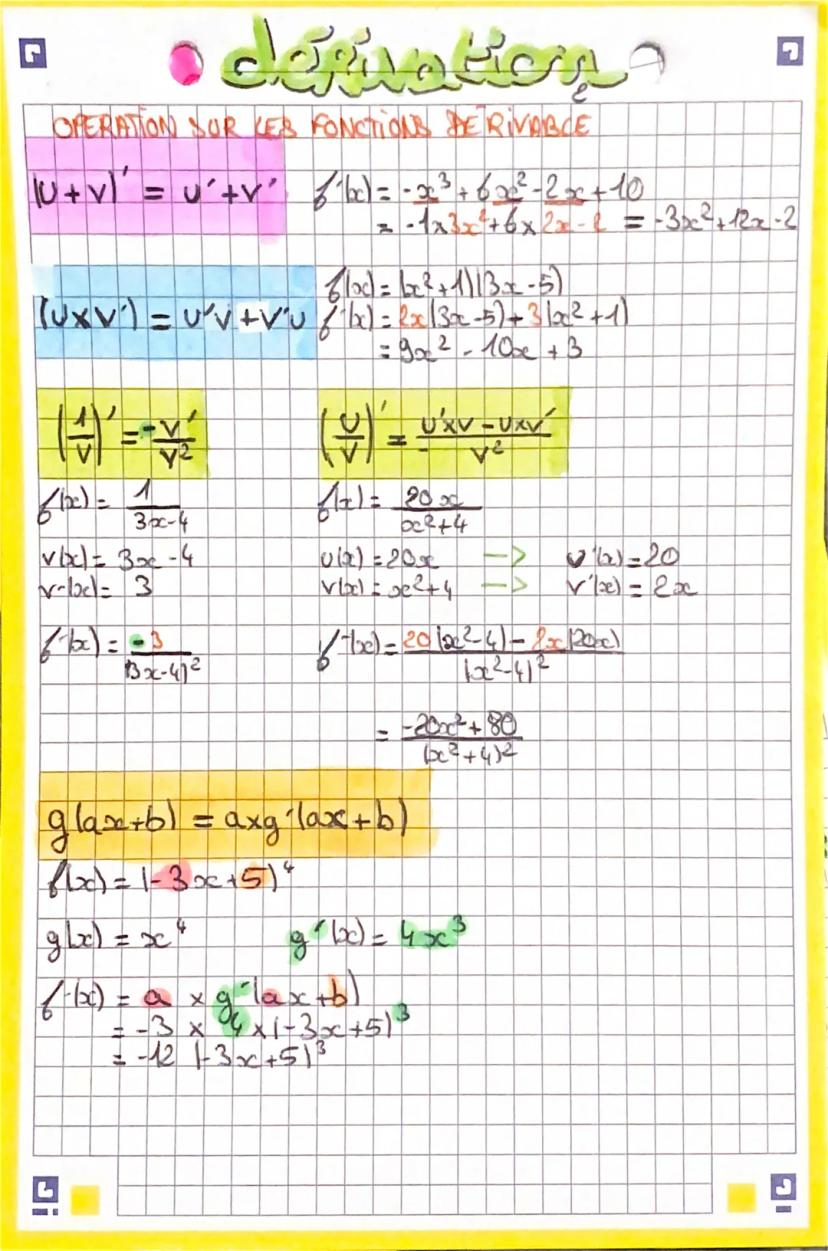 dérivation
OPERATION SUR LES FONCTIONS DERIVABLE
(U+V)' = U'+V'
f'(x) = -x³ + 6x² - 2x + 10
= -1x3x² + 6x2x - 2 = -3x² + 12x - 2
(UxV') = U'V + V'U
f(x) = (x²+1)(3x-5)
f'(x) = 2x(3x-5) + 3(x²+1)
= 9x² - 10x + 3
(1/V)' = -V'/V²
(U/V)' = U'xV - UxV'/V²
f(x) = 1/3x-4
f(x) = 20x/x²+4
v(x) = 3x-4
u(x) = 20x -> u'(x) = 20
v'(x) = 3
v(x) = x²+4 -> v'(x) = 2x
f'(x) = -3/(3x-4)²
f'(x) = 20(x²-4) - 2x(20x)/(x²-4)²
= -20x² + 80/(x²+4)²
g(ax+b) = axg'(ax+b)
f(x) = (-3x+5)⁴
g(x) = x⁴ g'(x) = 4x³
f'(x) = a x g'(ax+b)
= -3 x 4 x (-3x+5)³
= -12 (-3x+5)³